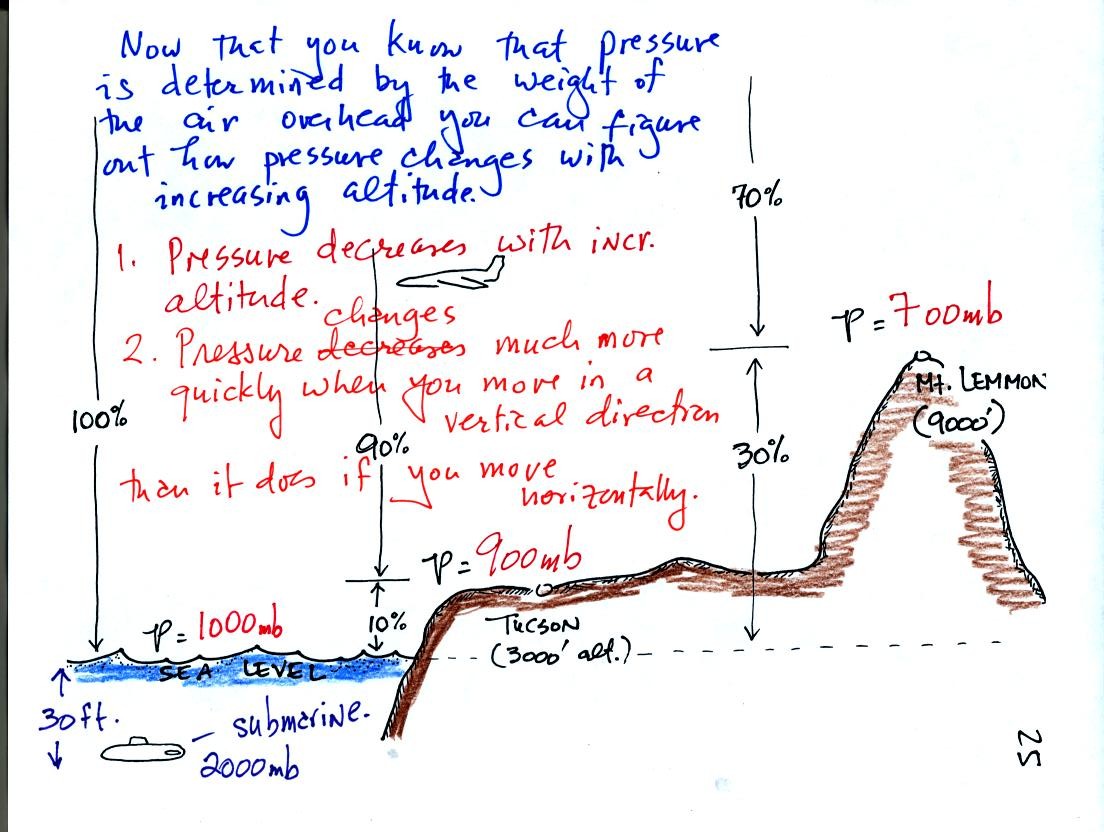 Now that you know that pressure
is determined by the weight of
the air overhead you can figure
out how pressure changes with
increasing altitude.
1. Pressure decreases with incr.
altitude.
changes
2. Pressure decreases much more
quickly when you move in a
vertical direction
than it does if you move
horizontally.
70%
p = 700mb
Mt. LEMMON
(9000')
100%
90%
30%
p = 900mb
p = 1000mb
10%
TUCSON
(3000' alt.)
SEA LEVEL
30ft.
submarine.
2000mb
25